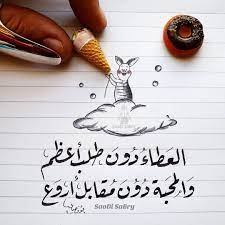 العطاء دون طلب أعظم
والمحبة دون مقابل أروع
SaaDi SaBry